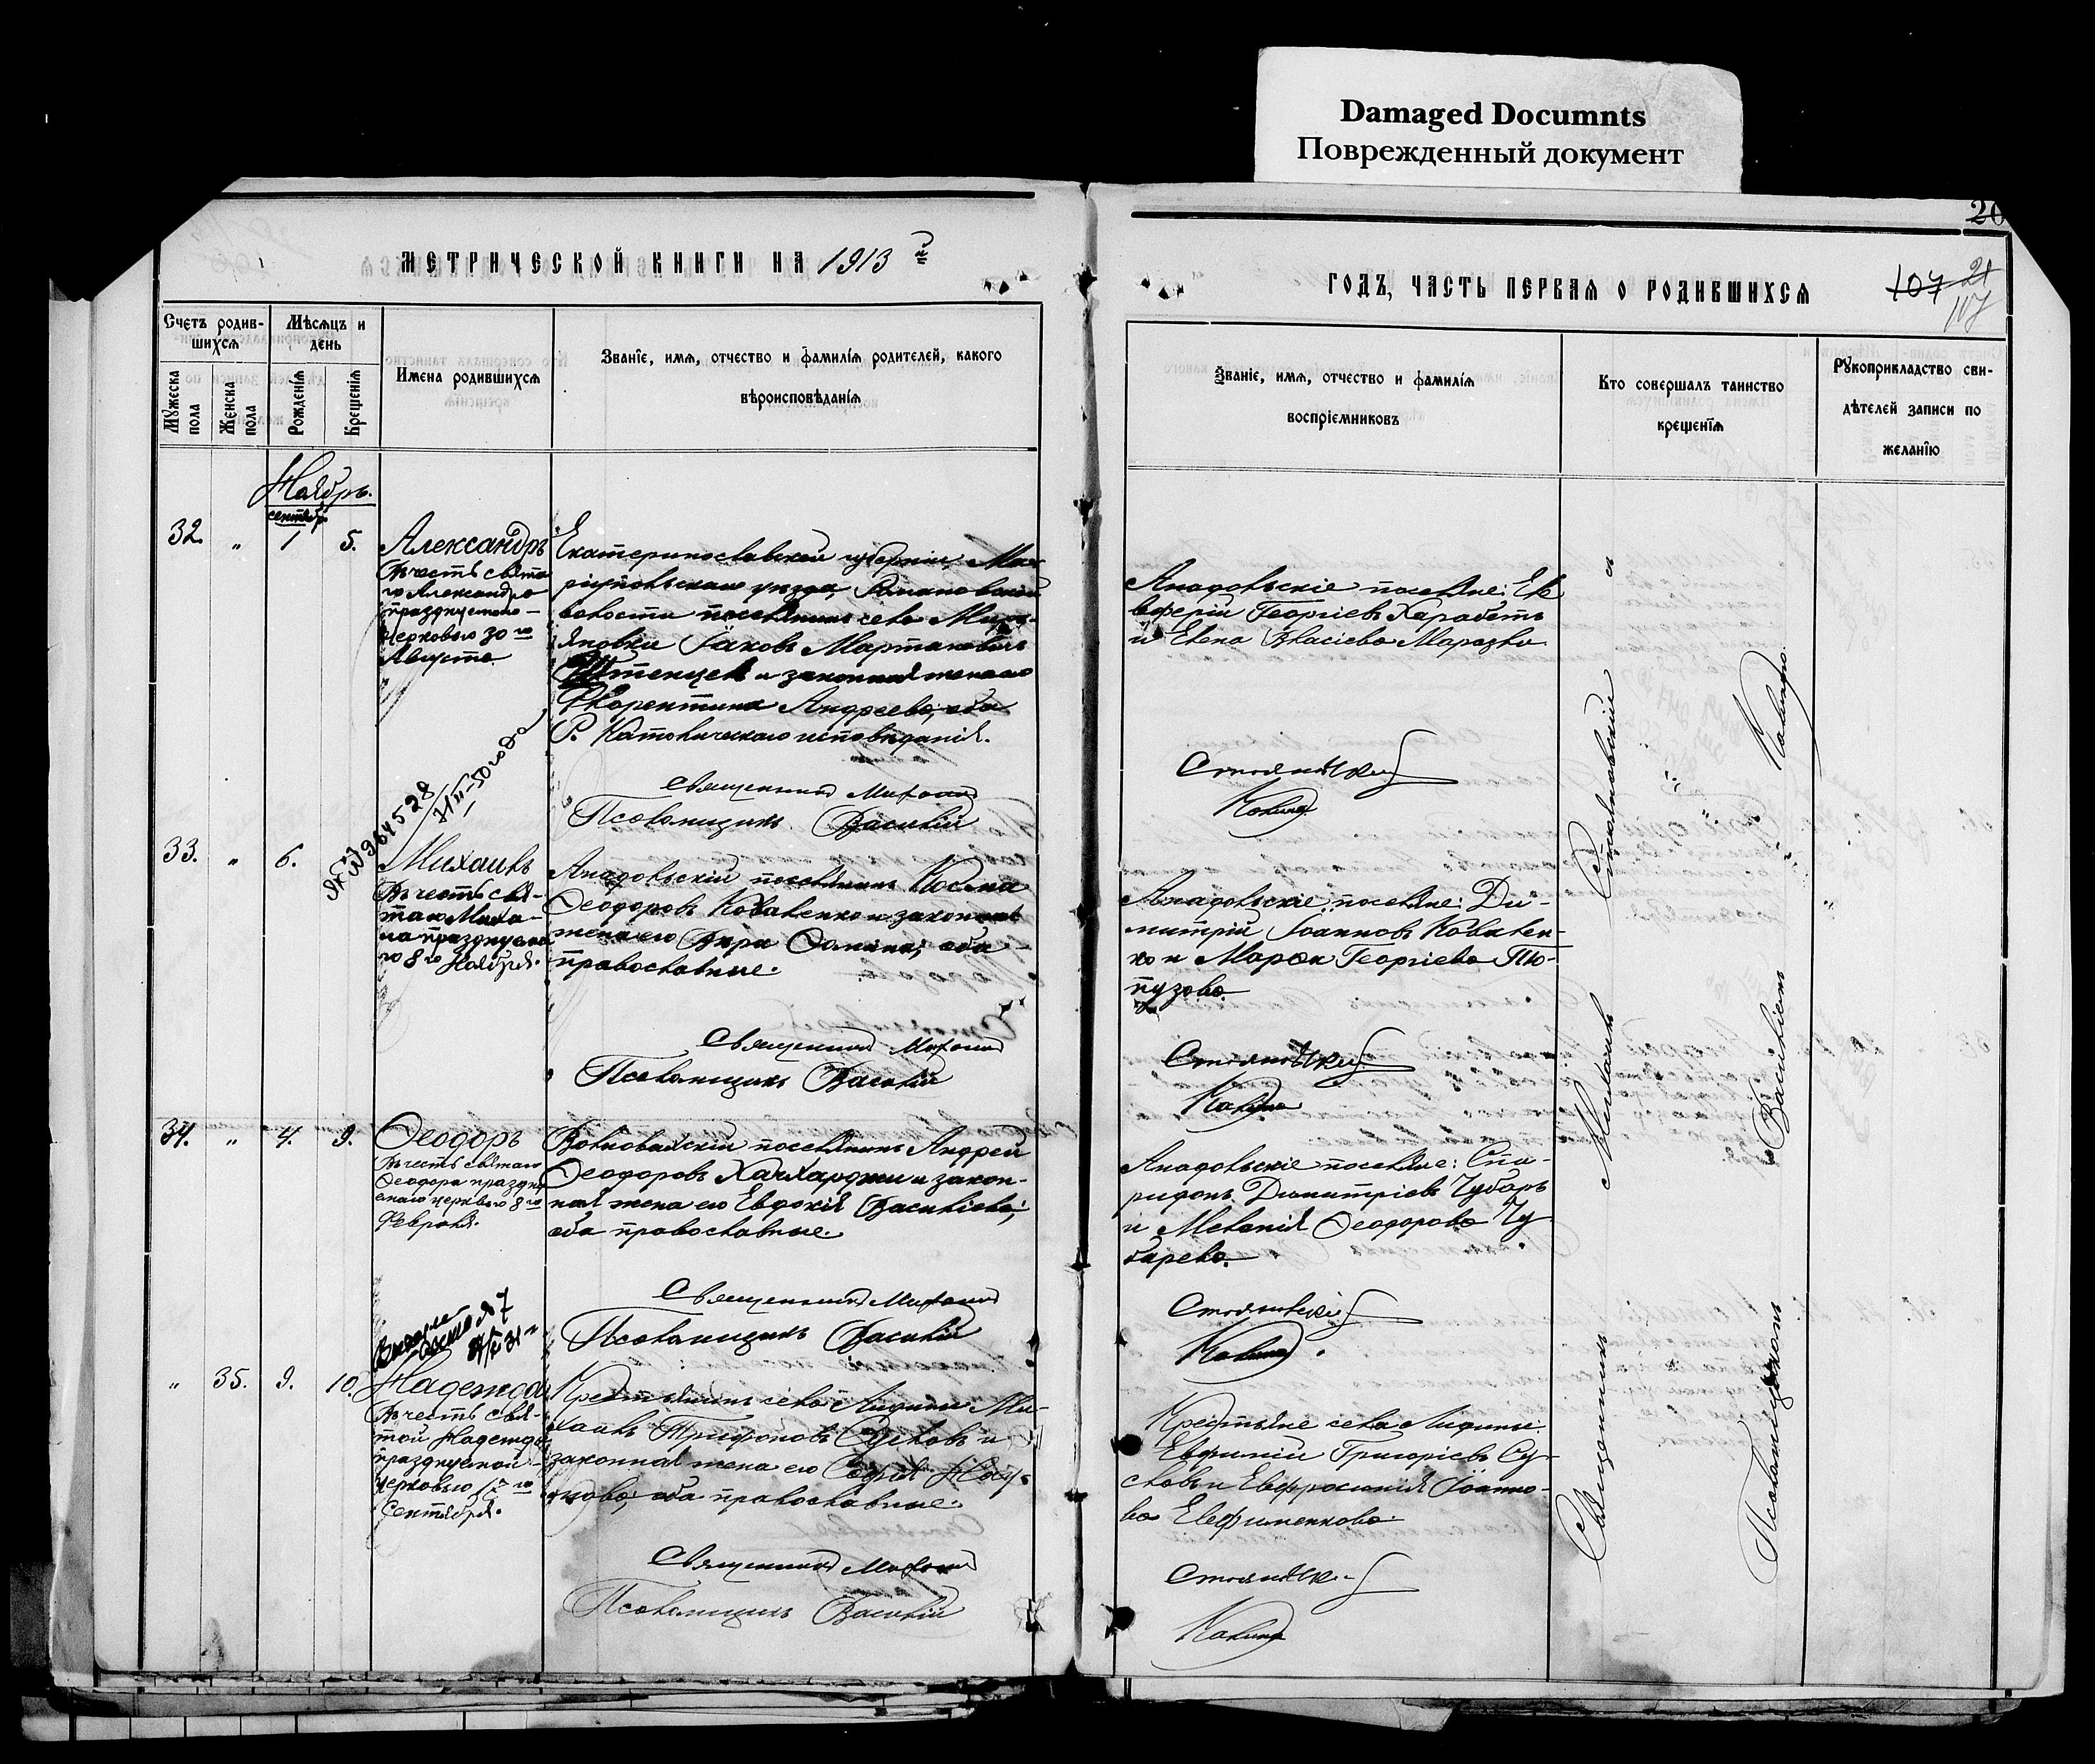 Damaged Documnts
Поврежденный документ
20
МЕТРИЧЕСКОЙ КНИГИ НА 1913 й
ГОДЪ, ЧАСТЬ ПЕРВАЯ О РОДИВШИХСЯ
107 21
107
Счетъ родив-
шихся
Мѣсяцъ и
день
Мужеска
пола
Женска
пола
Рожденія
Крещенія
Имена родившихся
Званіе, имя, отчество и фамилія родителей, какого
вѣроисповѣданія
Званіе, имя, отчество и фамилія
воспріемниковъ
Кто совершалъ таинство
крещенія
Рукоприкладство сви-
дѣтелей записи по
желанію
Ноябрь.
сентябр
32. " 1 5.
Александръ
Въ честь свята
го Александра
празднуемаго
церковью 30 го
Августа
Екатеринославской губерніи, Ма-
ріупольскаго уѣзда, Романовской
волости поселянинъ села
Іаковъ Мартиновичъ
и законная жена его
Флорентина Андреева, оба
Р. Католическаго исповѣданія.
Священникъ Михаилъ
Псаломщикъ Василій
Анадольскіе поселяне: Еле
вферій Георгіевъ Харабетъ
и Елена Власіева
Стояновскій
Калина
33. " 6.
Михаилъ
Въ честь свя-
таго Миха-
ила празднуема
го 8 го Ноября.
Анадольскій поселянинъ Косма
Ѳеодоровъ Коваленко и законная
жена его Вѣра Ѳомина; оба
православные.
Священникъ Михаилъ
Псаломщикъ Василій
Анадольскіе поселяне: Ди-
митрій Іоанновъ Ковален-
ко и Марѳа Георгіева Тю-
пузова.
Стояновскій
Калина
34. " 4. 9.
Ѳеодоръ
Въ честь святаго
Ѳеодора праздну
емаго церковью 8 го
Февраля.
Волновахскій поселянинъ Андрей
Ѳеодоровъ Хачхарджи и закон-
ная жена его Евдокія Василіева;
оба православные.
Священникъ Михаилъ
Псаломщикъ Василій
Анадольскіе поселяне: Спи-
ридонъ Димитріевъ Чубарь
и Меланія Ѳеодорова Чу
барева.
Стояновскій
Калина
" 35. 9. 10.
Надежда
Въ честь свя-
той Надежды
празднуемой
церковью 17 го
Сентября.
Крестьянинъ села Лидины Ми-
хаилъ Трифоновъ Сусловъ и
законная жена его Софія
оба православные.
Священникъ Михаилъ
Псаломщикъ Василій
Крестьяне села Лидины:
Евфимій Григорьевъ Су-
словъ и Евфросинія Іоанно-
ва Евфименкова.
Стояновскій
Калина
Священникъ Михаилъ Стояновскій
Псаломщикъ Василій Калина